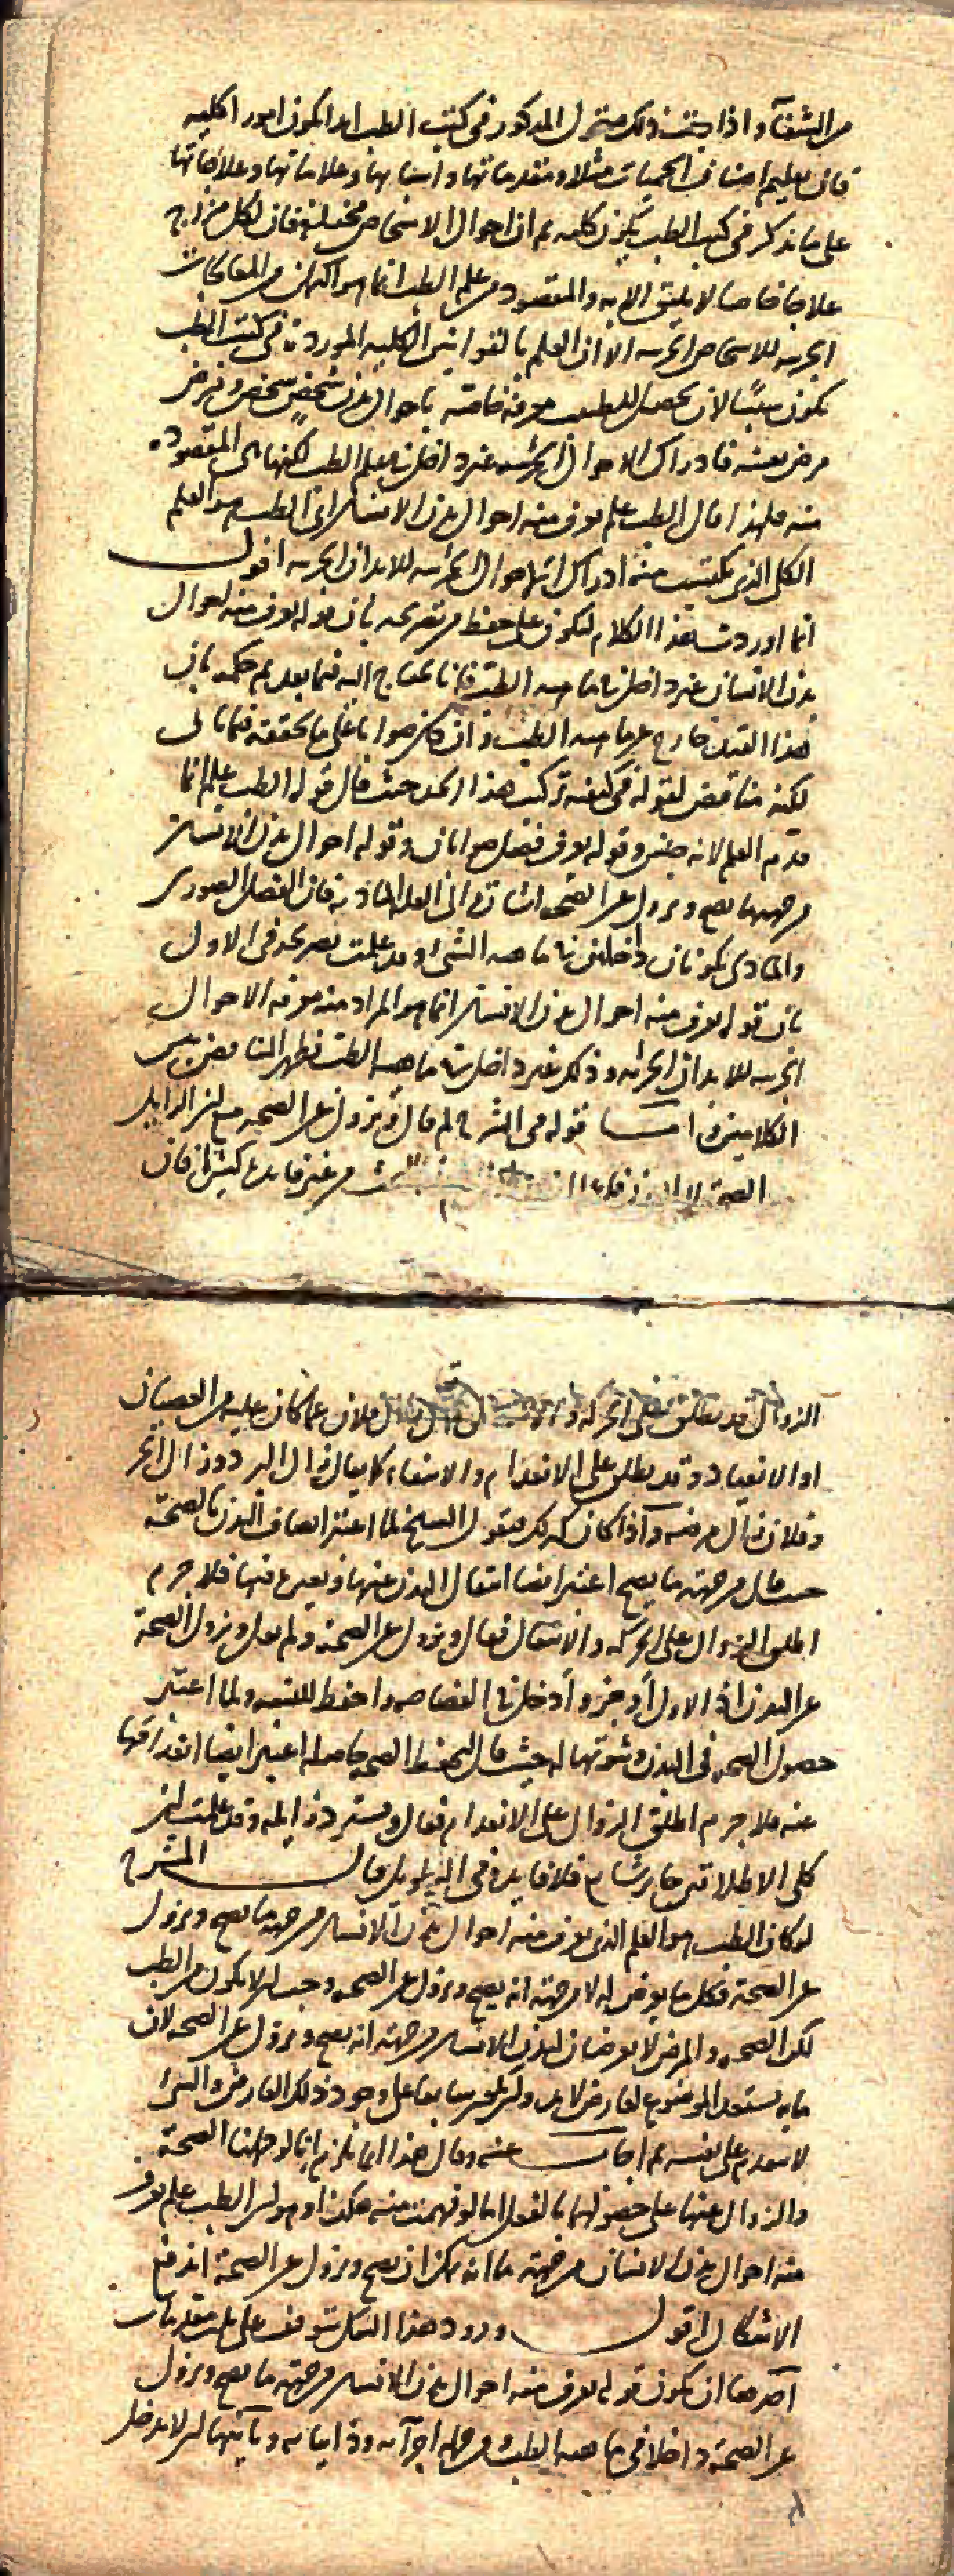 من الشفاء واذا تحققت ذلك فنقول المذكور فى كتب الطب ابدا يكون امورا كلية
فان تعليم اصناف الحميات مثلا ومقدماتها واسبابها وعلاماتها وعلاجاتها
على ما يذكر فى كتب الطب يكون كليه ثم ان احوال الاشخاص مختلفة فان لكل مزاج
علاجا خاصا لا يليق الا به والمقصود من علم الطب انما هو المعالجات
الجزييه للاشخاص الجزييه الا ان العلم بالقوانين الكلية الموردة فى كتب الطب
يكون سببا لان يحصل للطبيب معرفة خاصة باحوال بدن شخص شخص ومرض
مرض بعينه فادراك الاحوال الجزئيه غير داخل فى علم الطب لكنها هى المقصودة
منه فلهذا قال الطب علم يعرف منه احوال بدن الانسان اى الطب هو العلم
الكلى الذى يكتسب منه ادراك الاحوال الجزئيه للابدان الجزييه اقول
انما اوردت هذا الكلام ليكون على حفظ من تصريحه بان قوله يعرف منه احوال
بدن الانسان غير داخل فى ماهيه الطب فانا نحتاج اليه فيما بعد ثم حكمه بان
هذا القيد خارج عن ماهيه الطب وان كان صوابا على ما نحققه فيما يأتى
لكنه مناقض لقوله فى كيفيه تركيب هذا الحد حيث قال قوله الطب علم انما
قدم العلم لانه جنس وقوله يعرف فصل وقوله احوال بدن الانسان
من جهة ما يصح ويزول عن الصحة اشارة الى العلة المادية فان الفصل الصورى
والمادى يكونان داخلين فى ماهيه الشئ وقد علمت تصريحه فى الاول
بان قوله يعرف منه احوال بدن الانسان انما هو المراد منه معرفه الاحوال
الجزييه للابدان الجزئيه وذلك غير داخل فى ماهيه الطب فظهر التناقض بين
الكلامين واما قوله فى الشرح لم قال ويزول عن الصحه مع ان الزايل
الصحة لا من غير فايدة كثيرة فان
الزوال قد يطلق على الحركة زال فلان عما كان عليه من العصيان
او الانقياد وقد يطلق على الانعدام والانتفاء كما يقال زال البرد وزال الحر
وفلان زال مرضه واذا كان كذلك فنقول الشيخ لما اعتبر اتصاف البدن بالصحة
حيث قال من جهة ما يصح اعتبر ايضا انتقال البدن عنها فلا جرم
اطلق الزوال على الحركة والانتقال فقال ويزول عن الصحة ولم يقل ويزول الصحة
عن البدن اذ الاول اوجز وادخل فى الفصاحه ولما اعتبر
حصول الصحه فى البدن وثبوتها له حيث قال ليحفظ الصحه حاصله اعتبر ايضا انعدامها
عنه فلا جرم اطلق الزوال على الانعدام فقال ويسترد زايله وقد علمت ان
كلى الاطلاقين جايز شايع فلا فايدة فى التطويل قال الشرح
لو كان الطب هو العلم الذى يعرف منه احوال بدن الانسان من جهة ما يصح ويزول
عن الصحة فكل ما يعرض له لا من جهة انه يصح ويزول عن الصحه وجب ان لا يكون من الطب
لكن الصحه والمرض لا يعرضان لبدن الانسان من جهة انه يصح ويزول عن الصحه لان
ما به يستعد الموضوع لعارض لا بد وان يكون سابقا على وجود ذلك العارض والشئ
لا يتقدم على نفسه ثم اجاب عنه وقال هذا انما يلزم ان لو حملنا الصحة
والزوال عنها على حصولهما بالفعل اما لو فهمت منه هكذا وهو ان الطب علم يعرف
منه احوال بدن الانسان من جهة ما انه يمكن ان يصح ويزول عن الصحة اندفع
الاشكال اقول ورود هذا الشك يتوقف على ثلث مقدمات
احدها ان يكون قوله يعرف منه احوال بدن الانسان من جهة ما يصح ويزول
عن الصحة داخلا فى ماهيه الطب ومن جملة اجزائه وذاتياته وثانيها ان لا يدخل